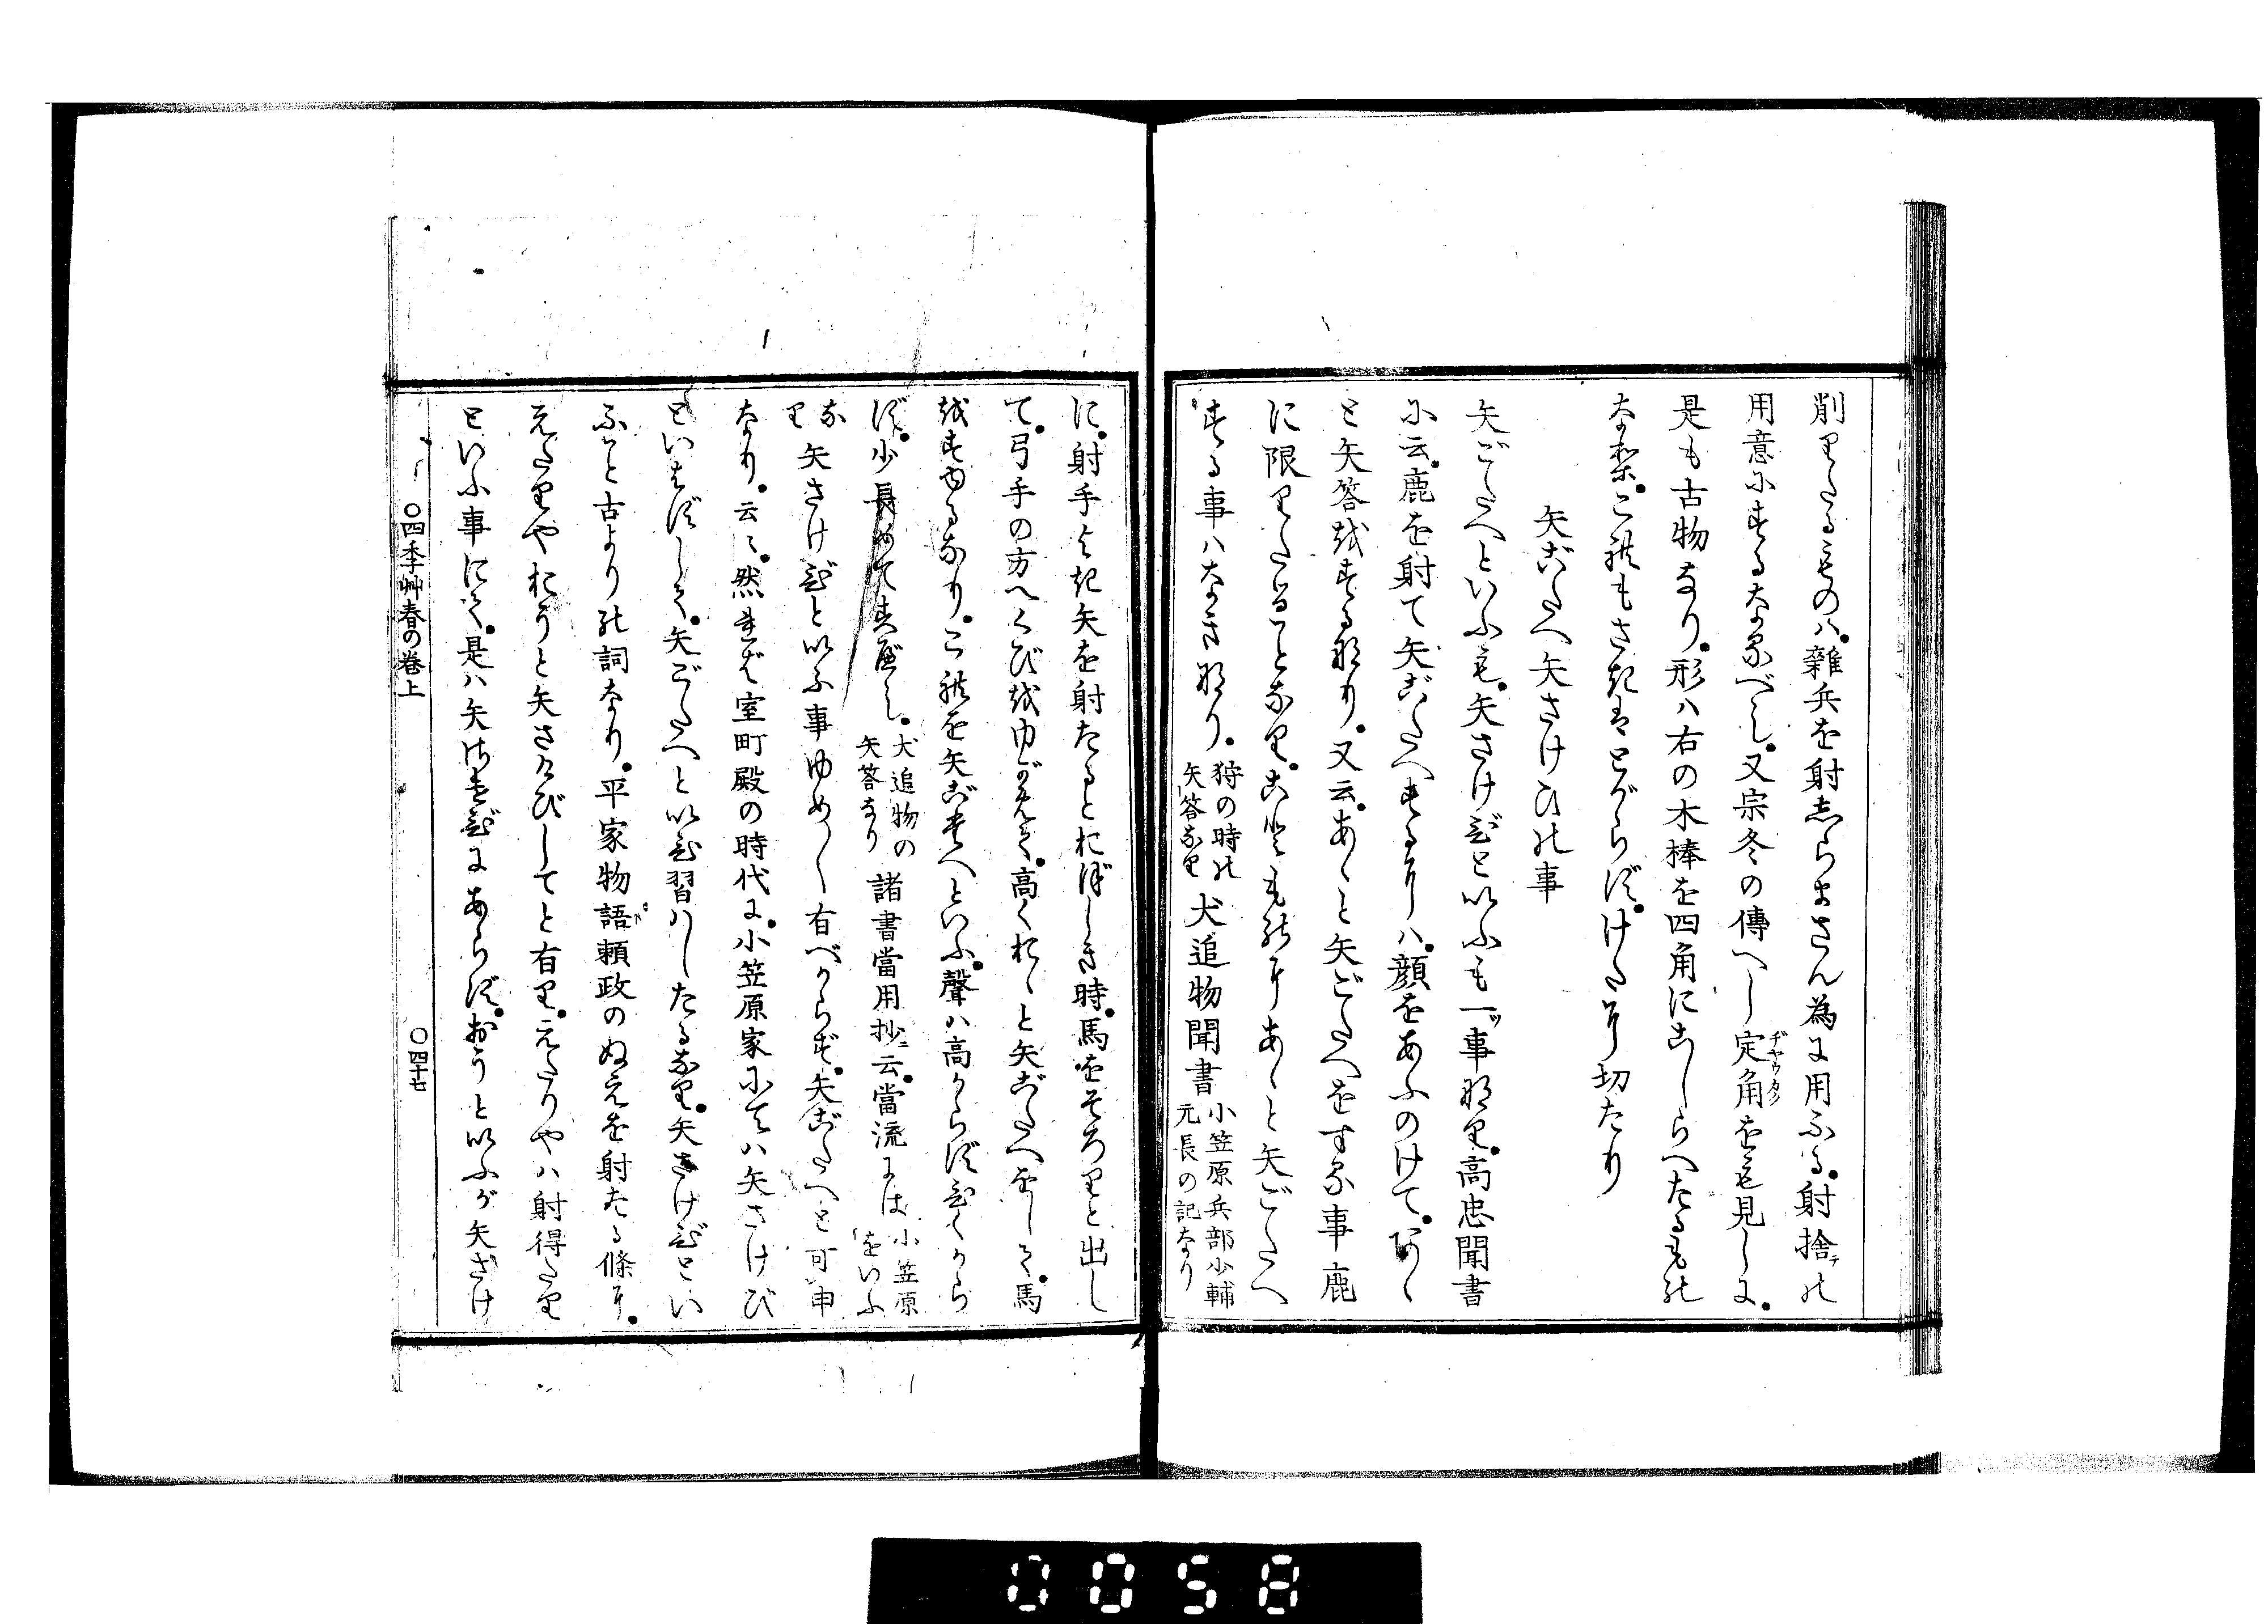 削りたるものハ雜兵を射志らまさん為に用ふる射捨テの
用意にするなるべし又宗冬の傳へし定角をも見しに
ヂヤウカク
是も古物なり形ハ右の木棒を四角にこしらへたるもの
なり是もさきはとがらずけたそり切たり
矢ごたへ矢さけひの事
矢ごたへといふも矢さけびといふも一ッ事なり高忠聞書
に云鹿を射て矢ごたへするをりハ顔をあふのけてあゝ
と矢答をするなり又云あゝと矢ごたへをする事鹿
に限りたることなりこともののをりあゝと矢ごたへ
する事ハなきなり 狩の時の矢答なり 犬追物聞書 小笠原兵部少輔元長の記なり
に射手よき矢を射たるとおぼしき時馬をそろりと出し
て弓手の方へくびをゆがめて高くおゝと矢ごたへをして馬
をすゆるなりこれを矢ごたへといふ聲ハ高からずひくから
ず少長めてすべし 犬追物の矢答なり 諸書當用抄ニ云當流には 小笠原をいふ
なり 矢さけびといふ事ゆめ〱有べからず矢ごたへと可申
なり云々然れば室町殿の時代に小笠原家にてハ矢さけび
といはずして矢ごたへといひ習ハしたるなり矢さけびとい
ふこと古よりの詞なり平家物語頼政のぬえを射たる條に
えたりやおうと矢さけびしてと有りえたりやハ射得たり
といふ事にて是ハ矢さけびにあらずおうといふが矢さけ
〇四季艸春の巻上
〇四十七
0058